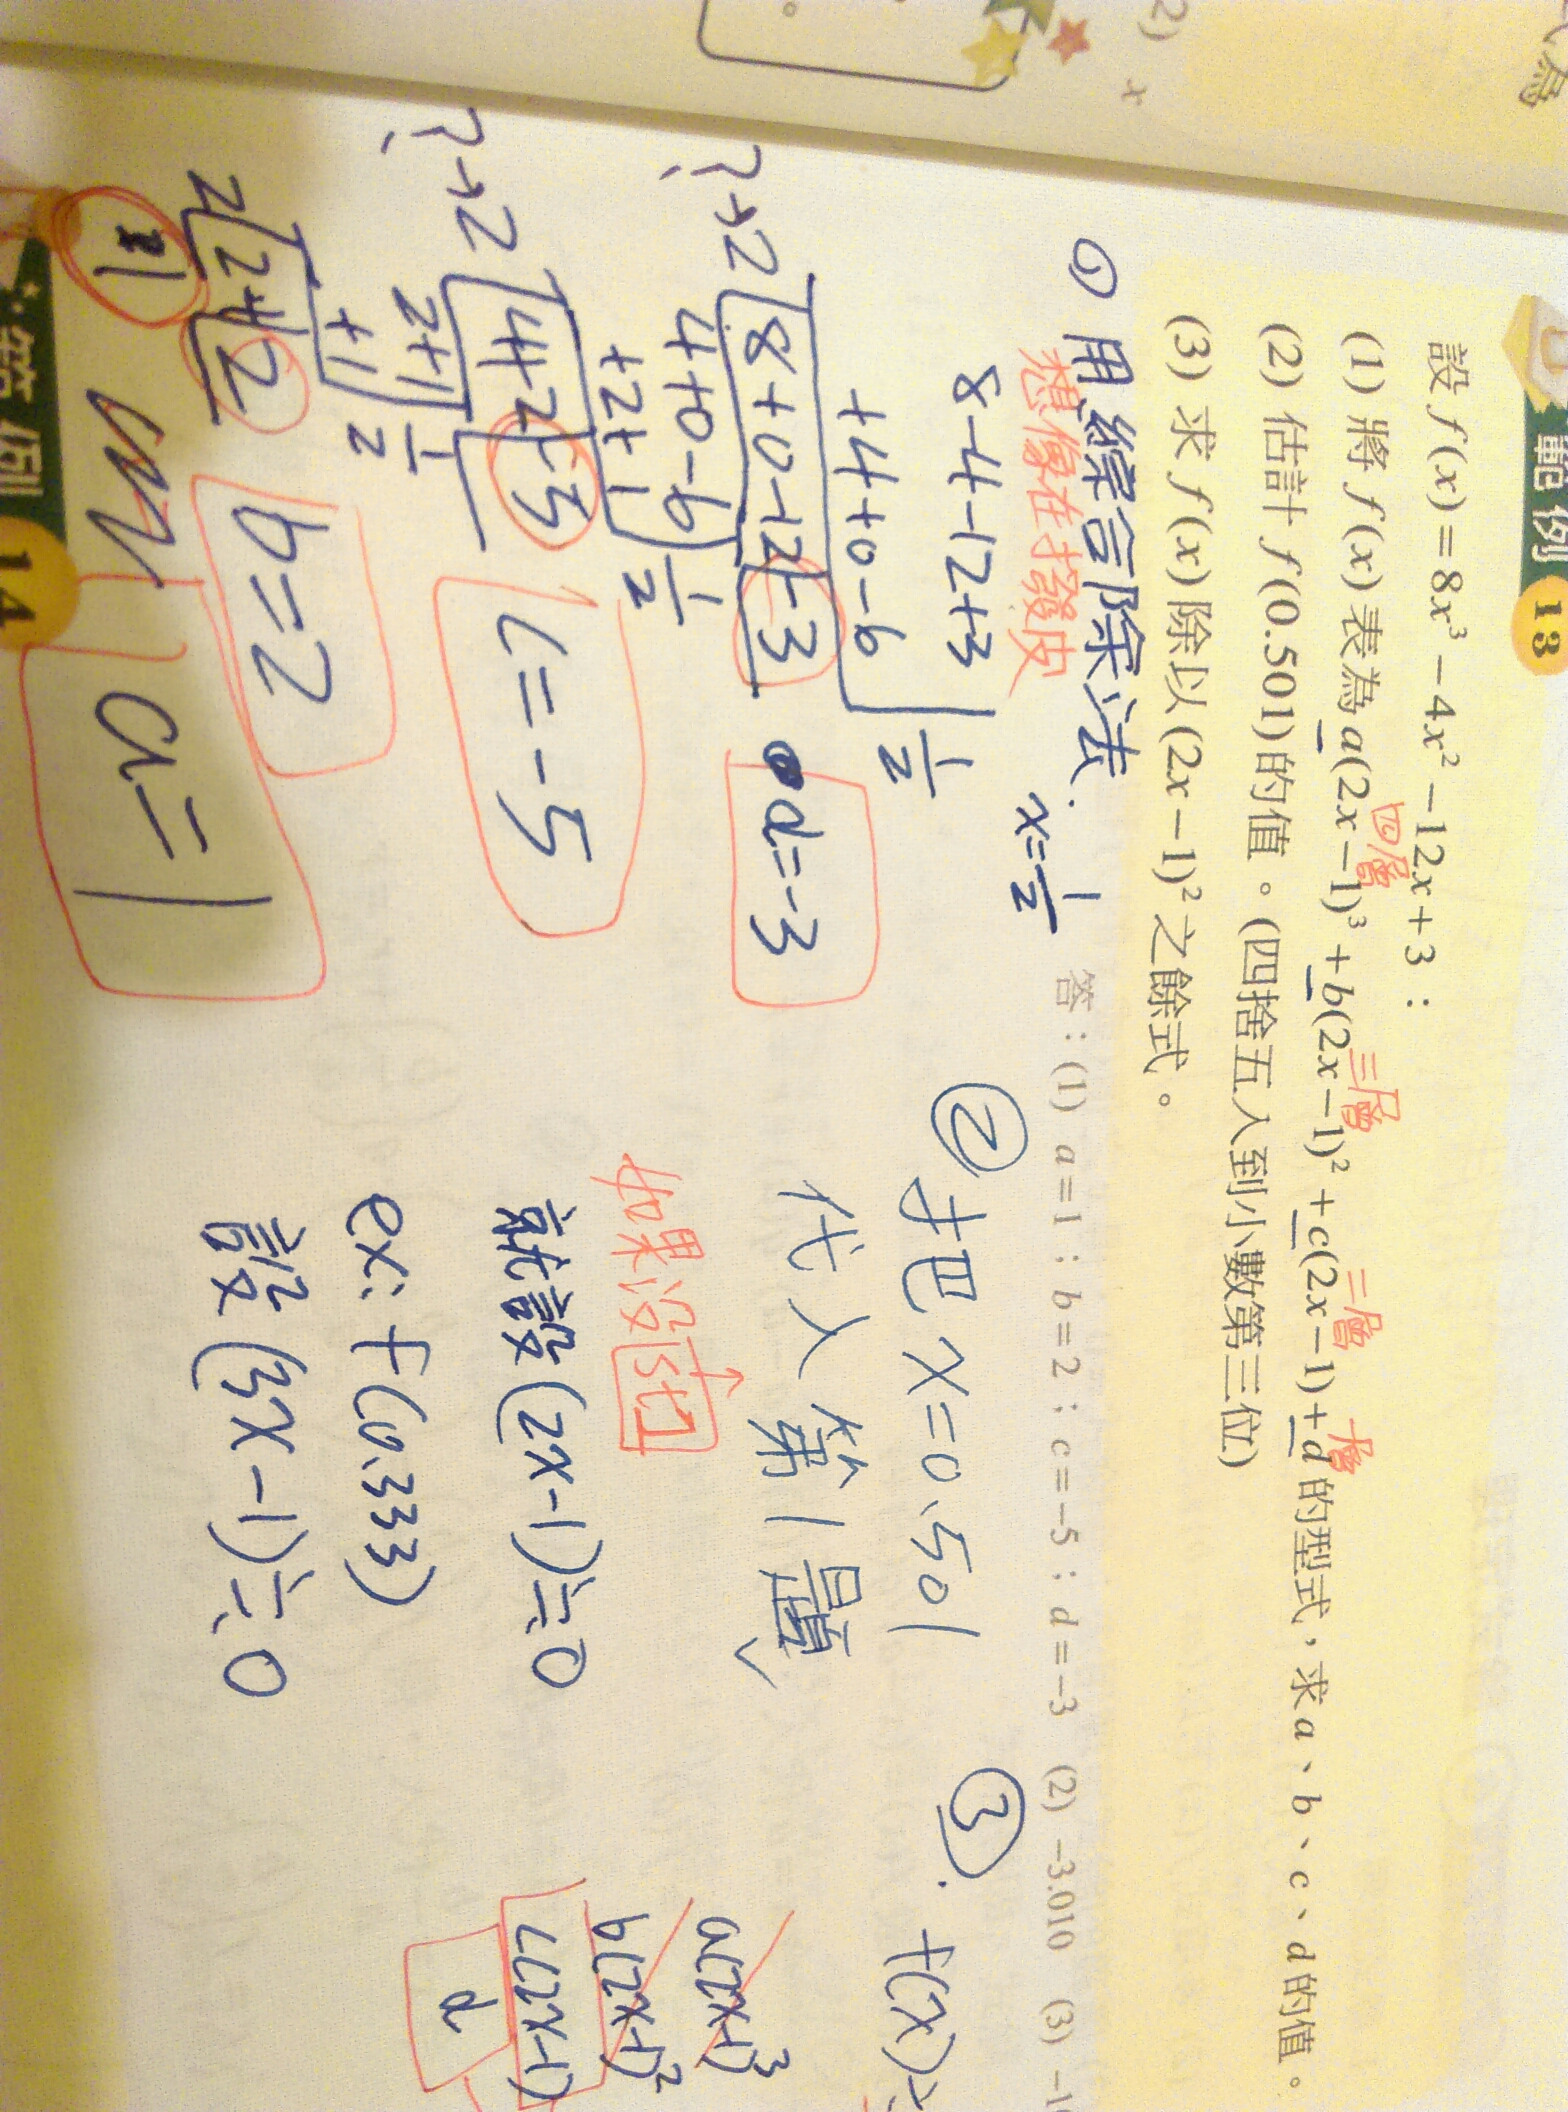 範例 13
設 f(x)=8x³−4x²−12x+3：
(1) 將 f(x) 表為 a(2x−1)³+b(2x−1)²+c(2x−1)+d 的型式，求 a、b、c、d 的值。
四層 三層 二層 一層
(2) 估計 f(0.501) 的值。(四捨五入到小數第三位)
(3) 求 f(x) 除以 (2x−1)² 之餘式。
答：(1) a=1；b=2；c=−5；d=−3 (2) −3.010 (3) −1
① 用綜合除法. x=1/2
想像在扌發皮
8−4−12+3 | 1/2
+4+0−6
?÷2 8+0−12 −3 d=−3
4+0−6 | 1/2
+2+1
?÷2 4+2 −5 c=−5
2+1 | 1/2
+1
2 2 +2 b=2
1 a=1
② 把 x=0.501
代入第1題
如果沒
就設(2x−1)≒0
ex: f(0.333)
設(3x−1)≒0
③. f(x)
a(2x-1)³
b(2x-1)²
c(2x-1)
d
範例 14
2) x
為